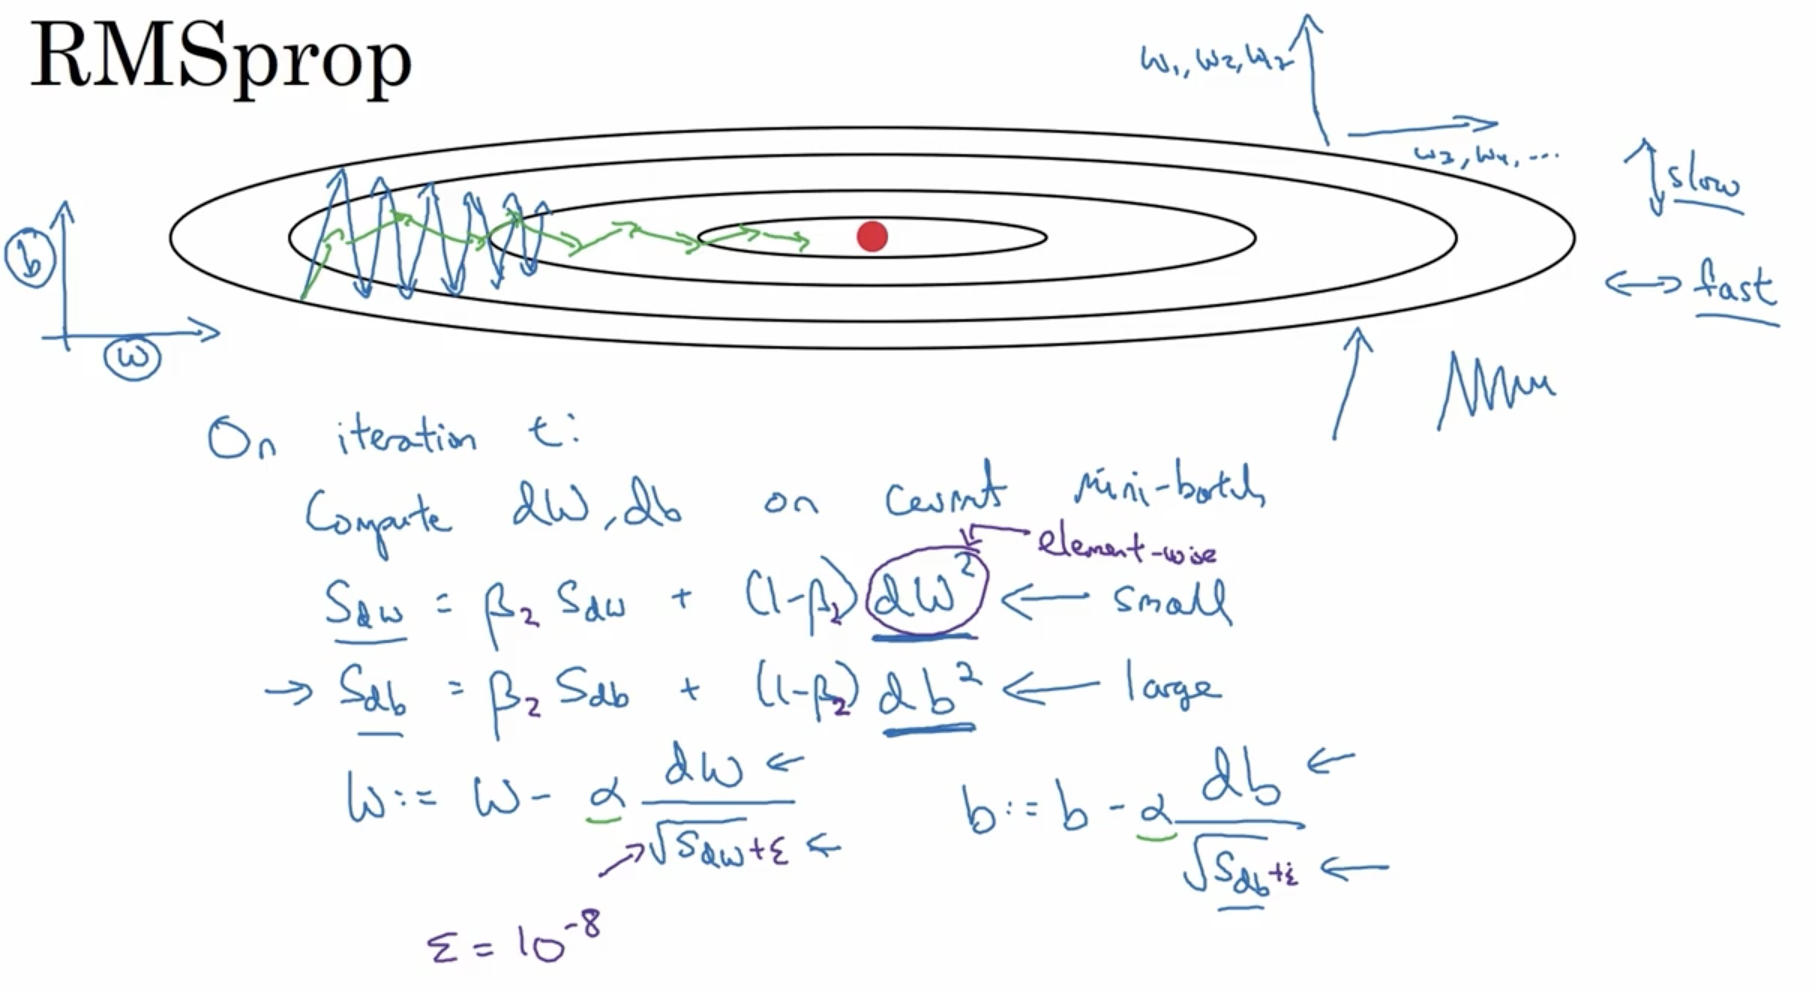 RMSprop
w₁, w₂, w₂
w₃, w₄, ...
slow
b
fast
w
On iteration t:
Compute dW, db on current mini-batch
element-wise
S_dw = β₂ S_dw + (1-β₂) dW² ← small
→ S_db = β₂ S_db + (1-β₂) db² ← large
W := W - α dW / √S_dw + ε ← b := b - α db / √S_db + ε ←
ε = 10⁻⁸